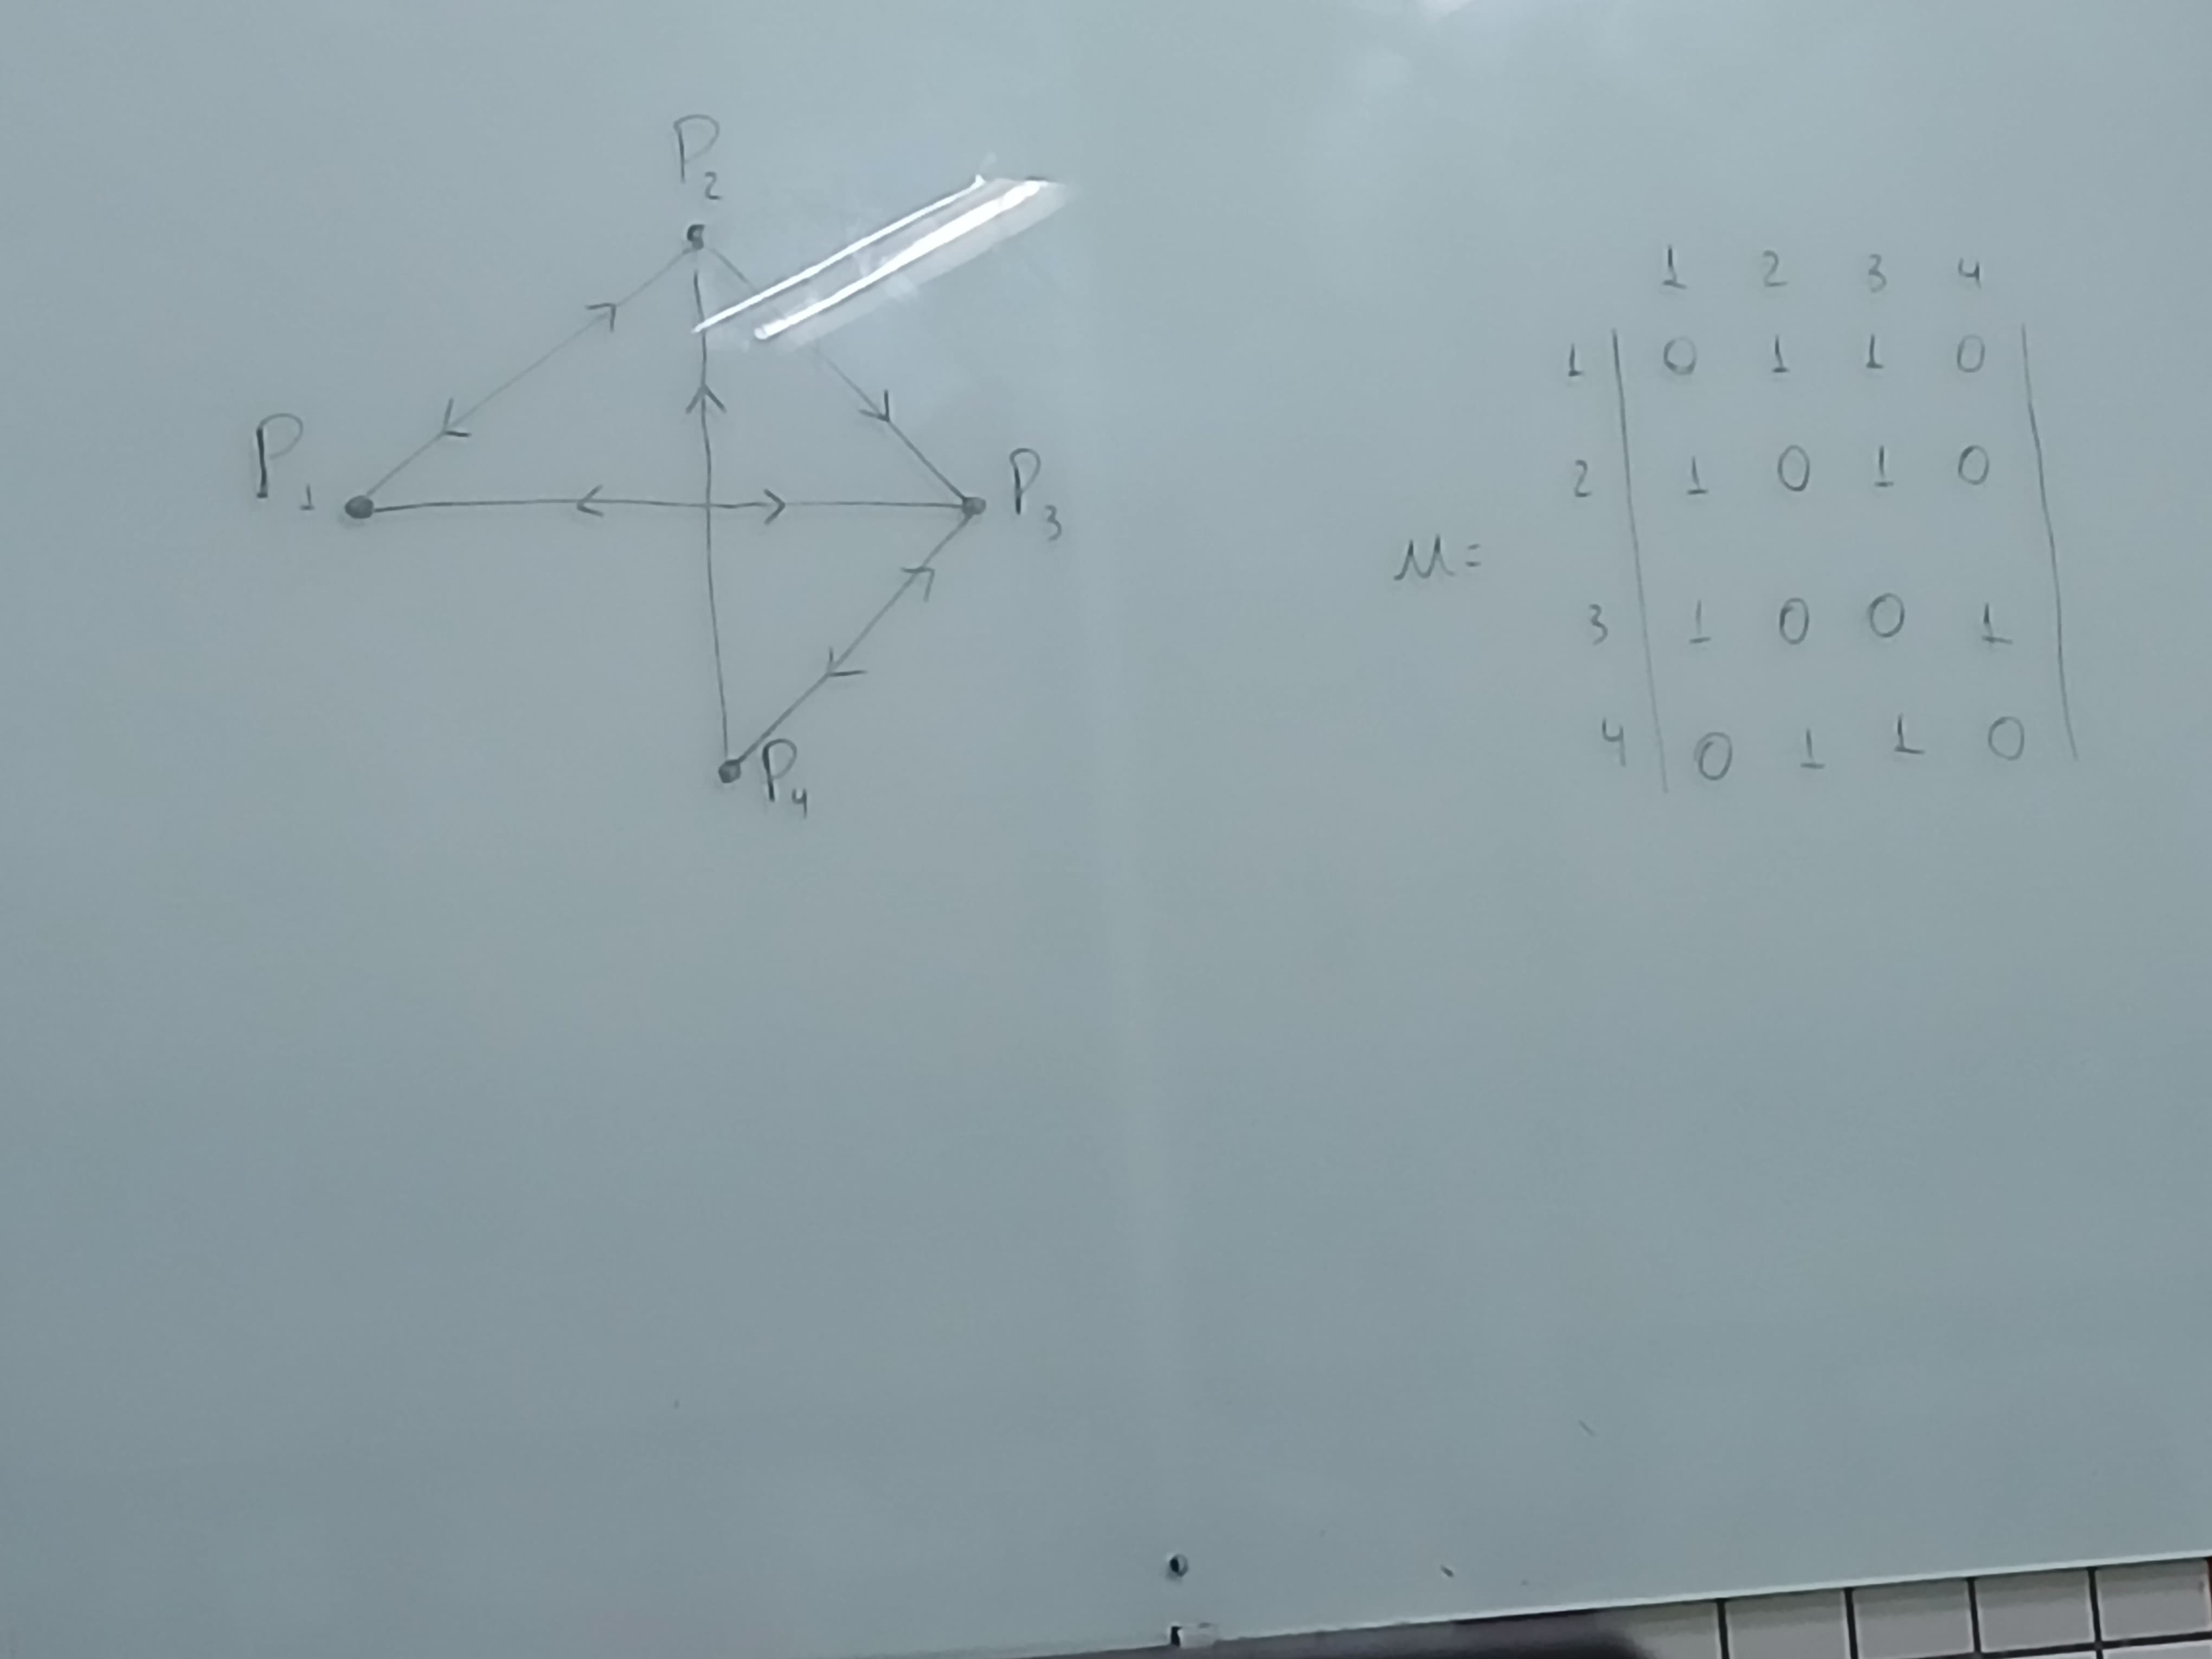 P2
P1
P3
P4
1 2 3 4
1 0 1 1 0
2 1 0 1 0
M=
3 1 0 0 1
4 0 1 1 0